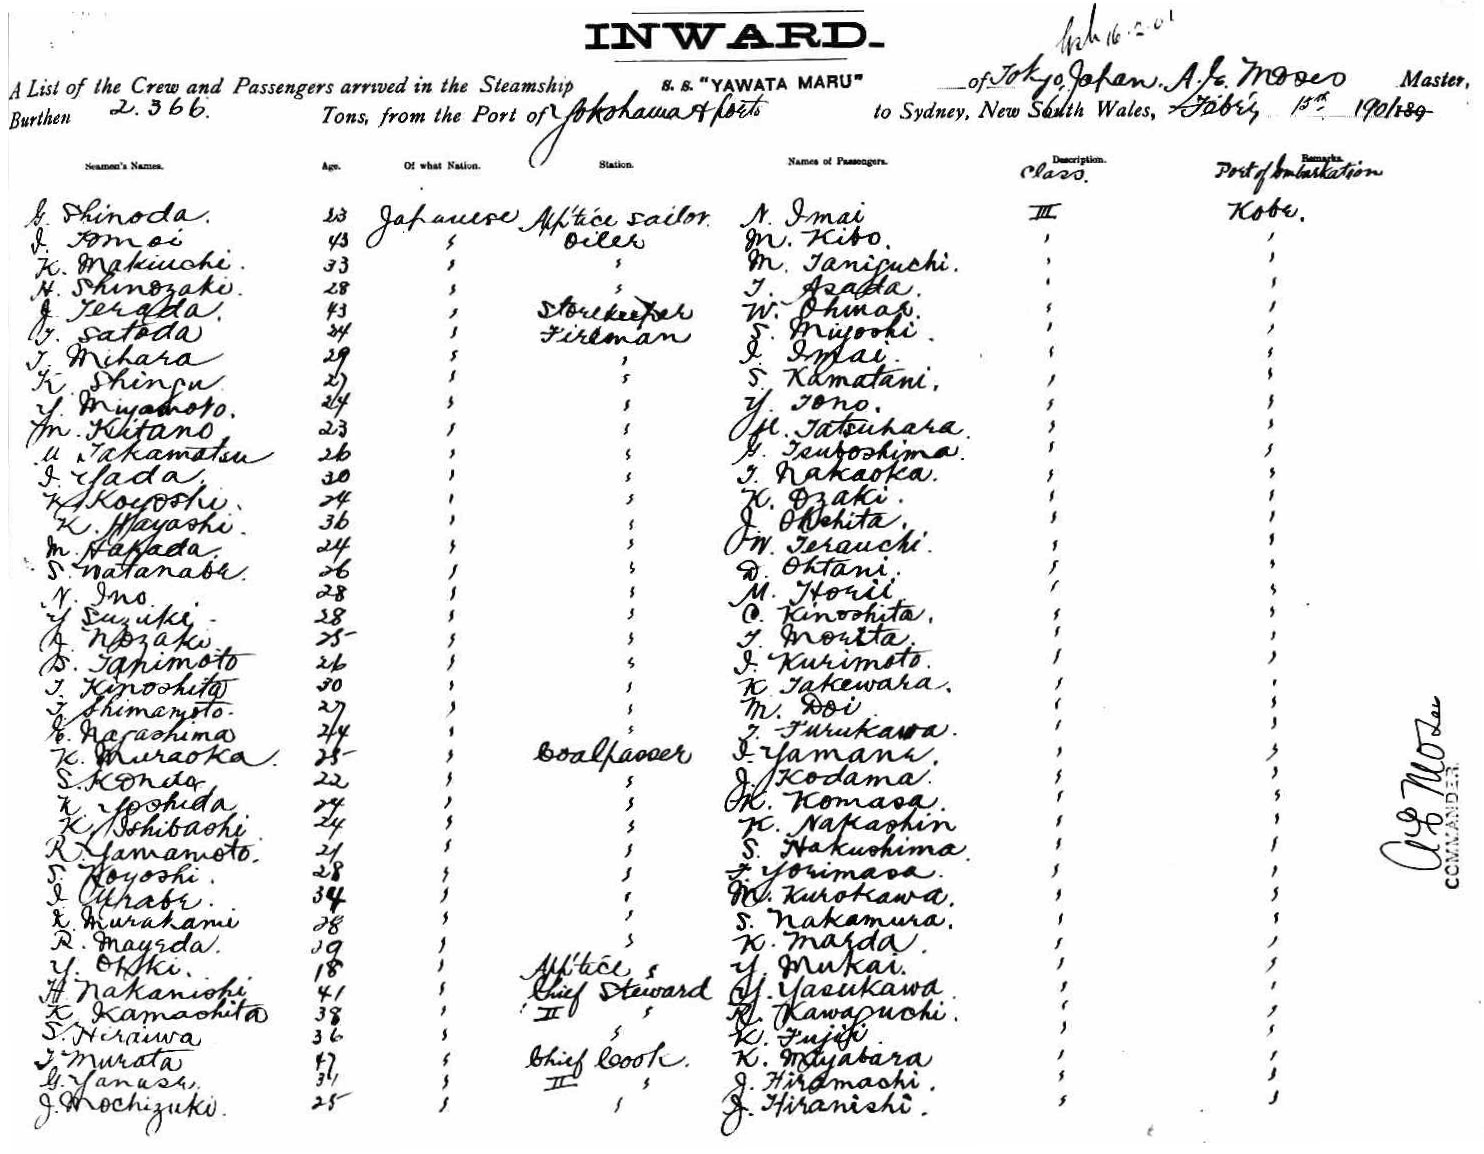 INWARD.
16.2.01
A List of the Crew and Passengers arrived in the Steamship S. S. "YAWATA MARU" of Tokyo, Japan. A. E. Moses Master,
Burthen 2.366. Tons, from the Port of Yokohama & ports to Sydney, New South Wales, Feb'y 15th 1901 189
Seamen's Names. Age. Of what Nation. Station. Names of Passengers. Description. Class. Remarks. Port of Embarkation
G. Shinoda. 23 Japanese App'tice sailor N. Imai III Kobe.
I. Tomoi 43 " Oiler M. Kibo. " "
K. Makiuchi. 33 " " M. Taniguchi. " "
H. Shinozaki. 28 " " T. Asada. " "
J. Terada. 43 " Storekeeper W. Ohmae. " "
T. Satoda 24 " Fireman S. Miyoshi. " "
T. Mihara 29 " " I. Imai. " "
K. Shingu 27 " " S. Kamatani. " "
Y. Miyamoto. 24 " " Y. Tono. " "
M. Kitano 23 " " H. Tatsuhara. " "
U. Takamatsu 26 " " G. Tsuboshima. " "
I. Yada. 30 " " T. Nakaoka. " "
K. Koyoshi. 24 " " K. Ozaki. " "
K. Hayashi. 36 " " J. Ohshita. " "
M. Harada. 24 " " W. Terauchi. " "
S. Watanabe. 26 " " D. Ohtani. " "
N. Ino. 28 " " M. Horii. " "
Y. Suzuki. 28 " " C. Kinoshita. " "
J. Nozaki. 25 " " T. Morita. " "
S. Tanimoto 26 " " I. Kurimoto. " "
T. Kinoshita 30 " " K. Takewara. " "
T. Shimamoto. 27 " " M. Doi " "
E. Nagashima 24 " " T. Furukawa. " "
K. Muraoka. 25 " Coalpasser I. Yamane. " "
S. Kondo 22 " " J. Kodama. " "
K. Yoshida 24 " " K. Komasa. " "
K. Ishibashi 24 " " K. Nakashin " "
R. Yamamoto. 21 " " S. Hakushima. " "
S. Koyoshi. 28 " " F. Yorimasa. " "
I. Urabe. 34 " " M. Kurokawa. " "
K. Murakami 28 " " S. Nakamura. " "
R. Mayeda. 29 " " K. Maeda. " "
Y. Ohki. 18 " App'tice " Y. Mukai. " "
H. Nakanishi 41 " Chief Steward Y. Yasukawa " "
K. Kamashita 38 " II " R. Kawaguchi. " "
S. Hiraiwa 36 " " K. Fujii " "
T. Murata 47 " Chief Cook. K. Miyabara " "
G. Yanase. 31 " II " J. Hiramachi. " "
J. Mochizuki. 25 " " J. Hiranishi. " "
A E Moses
COMMANDER.